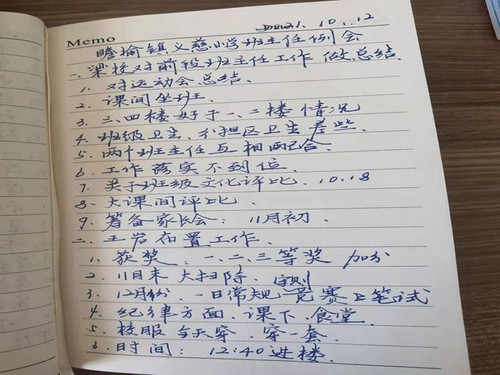 2021.10.12
Memo
瞻榆镇义慈小学班主任例会
一、梁校对前段班主任工作做总结
1. 对运动会总结.
2. 课间坐班.
3. 三、四楼好于一、二楼情况
4. 班级卫生、分担区卫生差些.
5. 两个班主任互相配合.
6. 工作落实不到位.
7. 关于班级文化评比. 10.18
8. 大课间评比.
9. 筹备家长会: 11月初.
二. 王岩布置工作.
1. 获奖. 一、二、三等奖 加分
2. 11月末 大扫除.
3. 12月份. 一日常规竞赛 笔试
4. 纪律方面. 课下、食堂.
5. 校服 全天穿. 穿一套.
6. 时间: 12:40进楼.